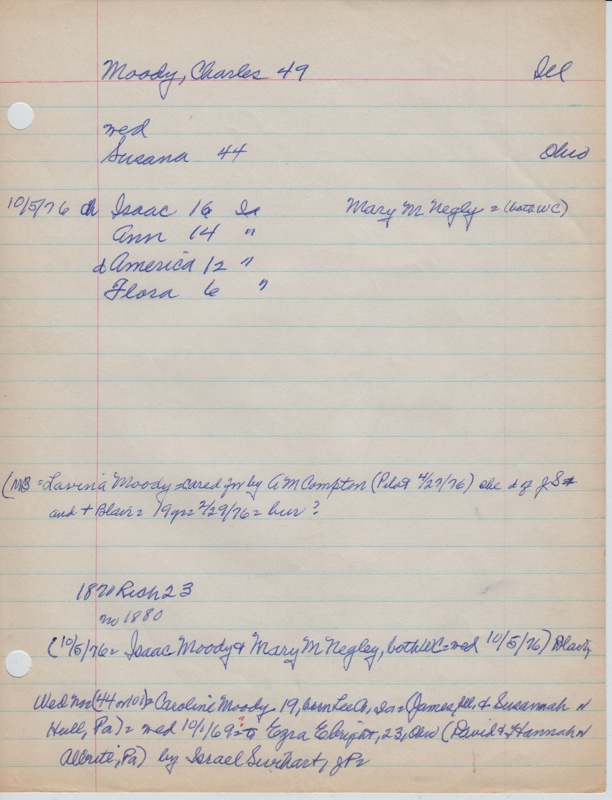 Moody, Charles 49 Ill
wed
Susana 44 Ohio
10/5/76 ch Isaac 16 Ia Mary M Negley = (both WC)
Ann 14 "
d America 12 "
Flora 6 "
(MB = Lavina Moody = cared for by A M Compton (Pilot 4/27/76) she d of J S
and + Blair = 19 yr = 2/29/76 = bur ?
1870 Rich 23
no 1880
(10/5/76 = Isaac Moody & Mary M Negley, both WC = wed 10/5/76)
Wed no (44 or 101) = Caroline Moody 19, born Lee Co, Ia = (James, Ill. & Susannah N
Hull, Pa) = wed 10/1/69 = ? Ezra Ebright, 23, Ohio (David & Hannah N
Albrite, Pa) by Israel JP =